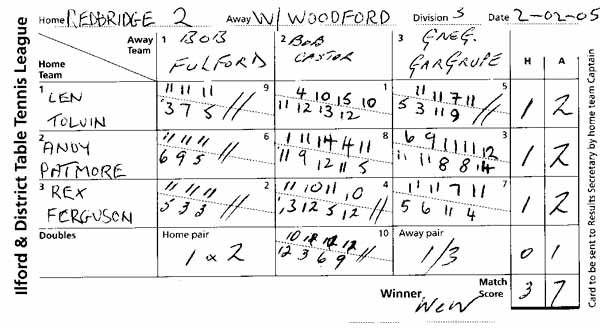 Home REDBRIDGE 2 Away W/WOODFORD Division 3 Date 2-02-05
Ilford & District Table Tennis League
Away Team
Home Team
1 BOB FULFORD
2 BOB CASTOR
3 GREG. GARGRUPE
H A
1 LEN TOLVIN
9
11 11 11
3 7 5 //
1
4 10 15 10
11 12 13 12
5
11 11 7 11
5 3 11 9 //
1 2
2 ANDY PATMORE
6
11 11 11
6 9 5 //
8
1 11 14 4 11
11 9 12 11 5
3
6 9 11 11 12
11 11 8 8 14
1 2
3 REX FERGUSON
2
11 11 11
3 3 3 //
4
11 10 11 10
13 12 5 12 //
7
11 11 7 11
5 6 11 4
1 2
Doubles
Home pair
1 & 2
10
12 3 6 9 //
Away pair
1/3
0 1
Winner WCW
Match Score 3 7
Card to be sent to Results Secretary by home team Captain